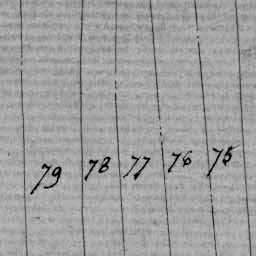 79 78 77 76 75